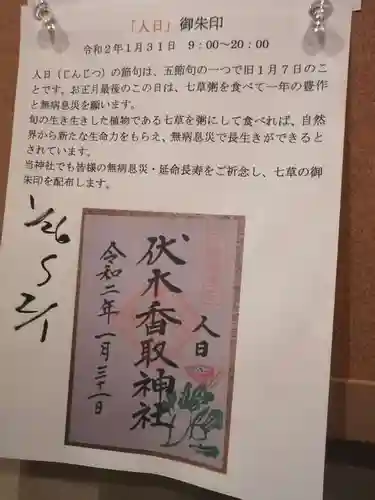 「人日」御朱印
令和２年１月３１日　９：００～２０：００
人日（じんじつ）の節句は、五節句の一つで旧１月７日のこ
とです。お正月最後のこの日は、七草粥を食べて一年の豊作
と無病息災を願います。
旬の生き生きした植物である七草を粥にして食べれば、自然
界から新たな生命力をもらえ、無病息災で長生きができると
されています。
当神社でも皆様の無病息災・延命長寿をご祈念し、七草の御
朱印を配布します。
1/26
～
2/1
人日
伏木香取神社
令和二年一月三十一日